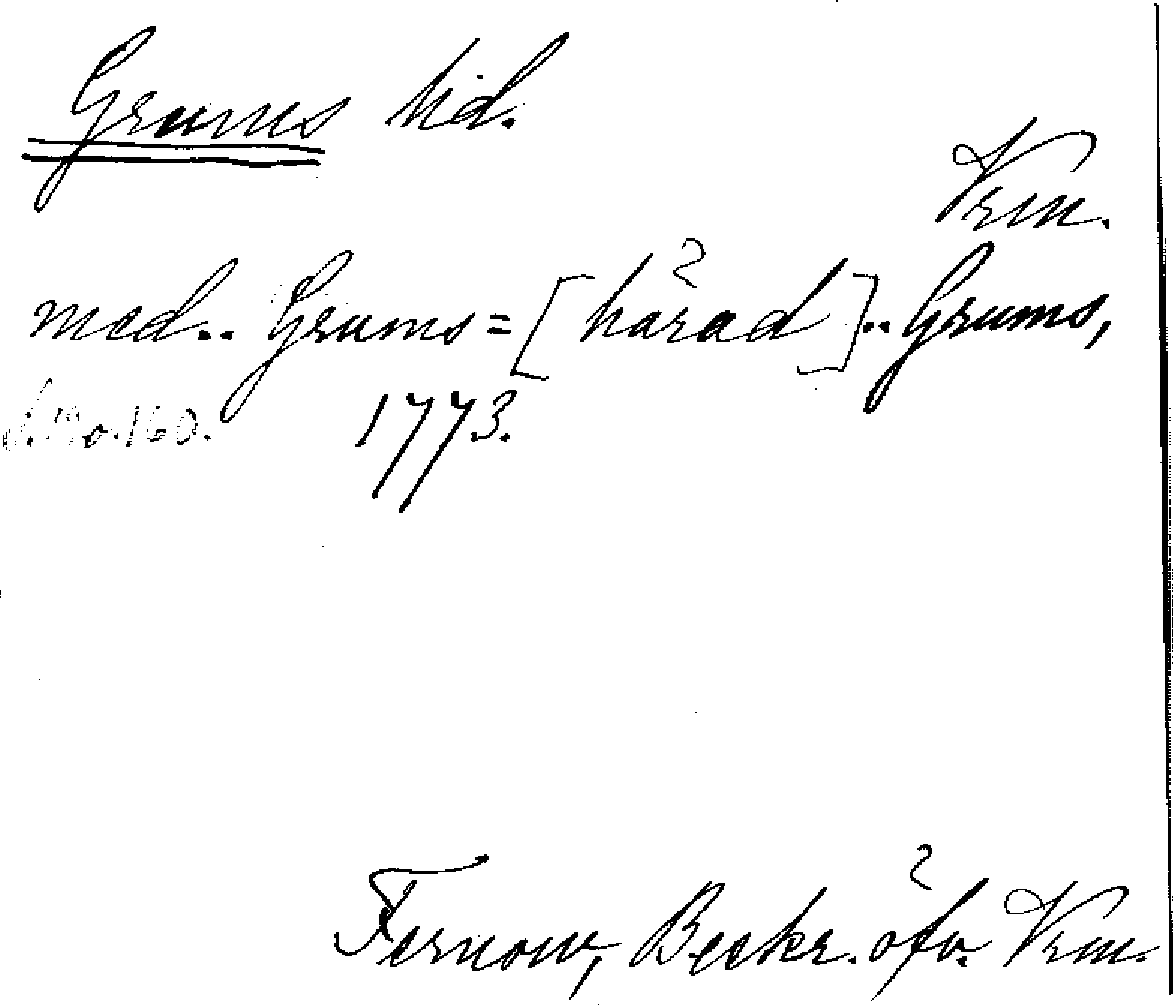 Grums hd.
Vrm.
med.. Grums=[härad].. Grums,
1773.
Fernow, Beskr. öfv. Vrm.